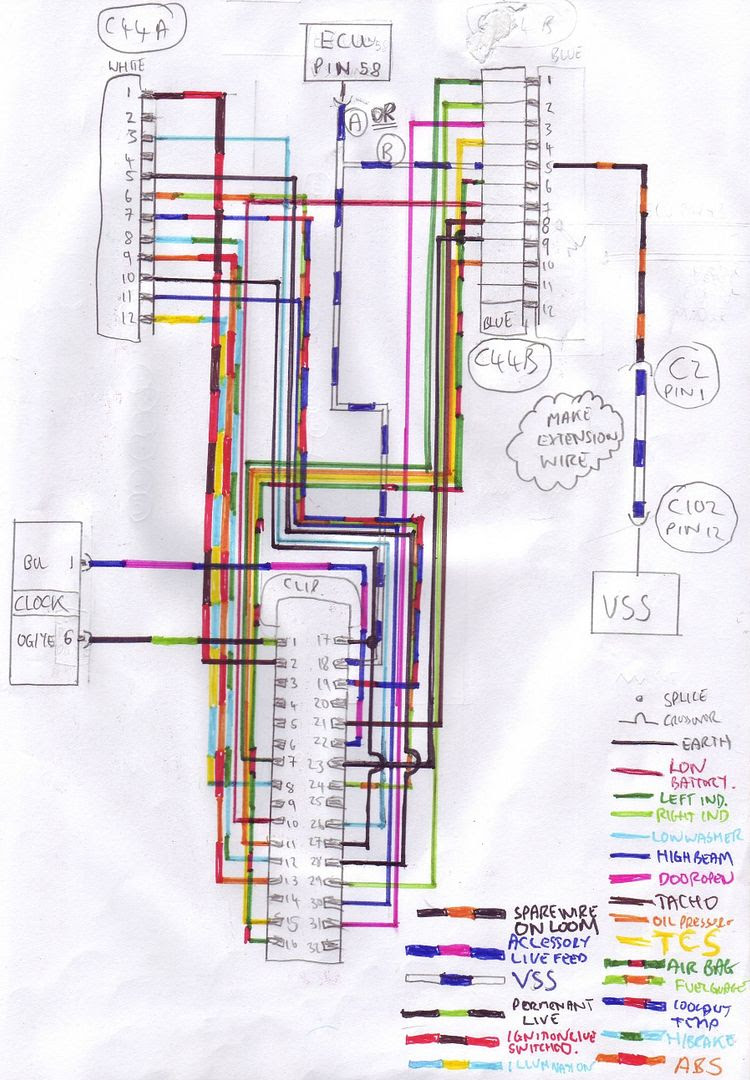 C44A
WHITE
1
2
3
4
5
6
7
8
9
10
11
12
ECU
PIN 58
A OR
B
B
BLUE
1
2
3
4
5
6
7
8
9
10
11
12
BLUE
C44B
C2
PIN 1
MAKE
EXTENSION
WIRE
C102
PIN 12
VSS
BU 1
CLOCK
OG/YE 6
CLIP.
1 17
2 18
3 19
4 20
5 21
6 22
7 23
8 24
9 25
10 26
11 27
12 28
13 29
14 30
15 31
16 32
SPLICE
CROSSOVER
EARTH
LOW
BATTERY.
LEFT IND.
RIGHT IND
LOW WASHER
HIGH BEAM
DOOR OPEN
TACHO
OIL PRESSURE
TCS
AIR BAG
FUEL GUAGE
COOLANT
TEMP
H/BRAKE
ABS
SPARE WIRE
ON LOOM
ACCESSORY
LIVE FEED
VSS
PERMENANT
LIVE
IGNITION LIVE
SWITCHED.
ILLUMINATION